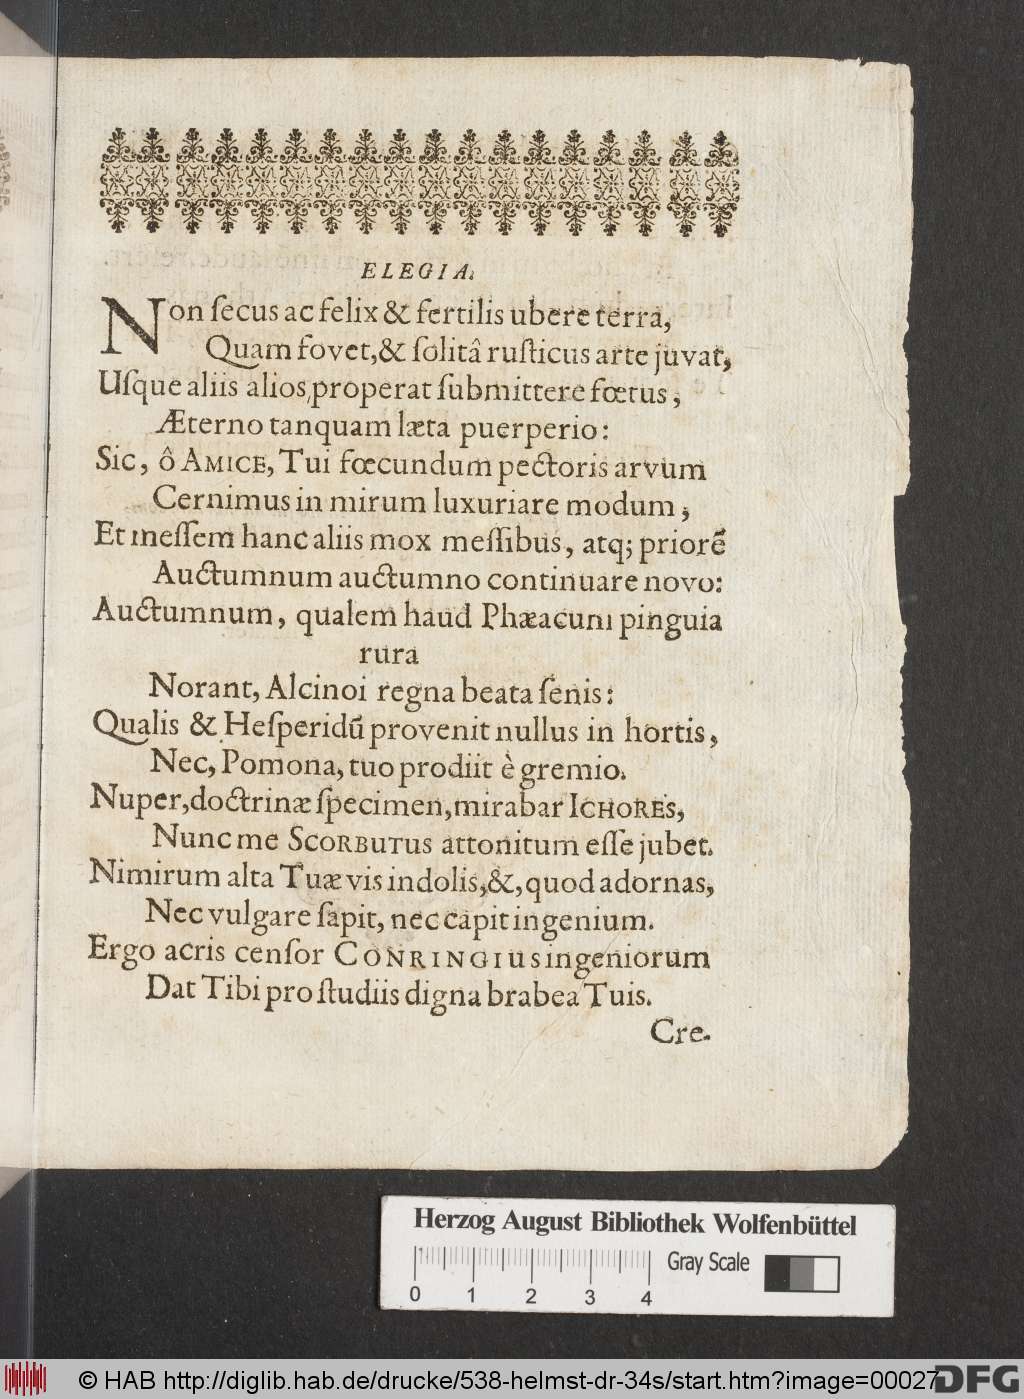 ELEGIA.
Non ſecus ac felix & fertilis ubere terra,
Quam fovet, & ſolitâ ruſticus arte juvat,
Uſque aliis alios properat ſubmittere fœtus,
Æterno tanquam læta puerperio:
Sic, ô AMICE, Tui fœcundum pectoris arvum
Cernimus in mirum luxuriare modum,
Et meſſem hanc aliis mox meſſibus, atq; priorē
Auctumnum auctumno continuare novo:
Auctumnum, qualem haud Phæacum pinguia
rura
Norant, Alcinoi regna beata ſenis:
Qualis & Heſperidū provenit nullus in hortis,
Nec, Pomona, tuo prodiit è gremio.
Nuper, doctrinæ ſpecimen, mirabar ICHORES,
Nunc me SCORBUTUS attonitum eſſe jubet.
Nimirum alta Tuæ vis indolis, &, quod adornas,
Nec vulgare ſapit, nec capit ingenium.
Ergo acris cenſor CONRINGIUS ingeniorum
Dat Tibi pro ſtudiis digna brabea Tuis.
Cre-
Herzog August Bibliothek Wolfenbüttel
Gray Scale
0 1 2 3 4
© HAB http://diglib.hab.de/drucke/538-helmst-dr-34s/start.htm?image=00027
DFG